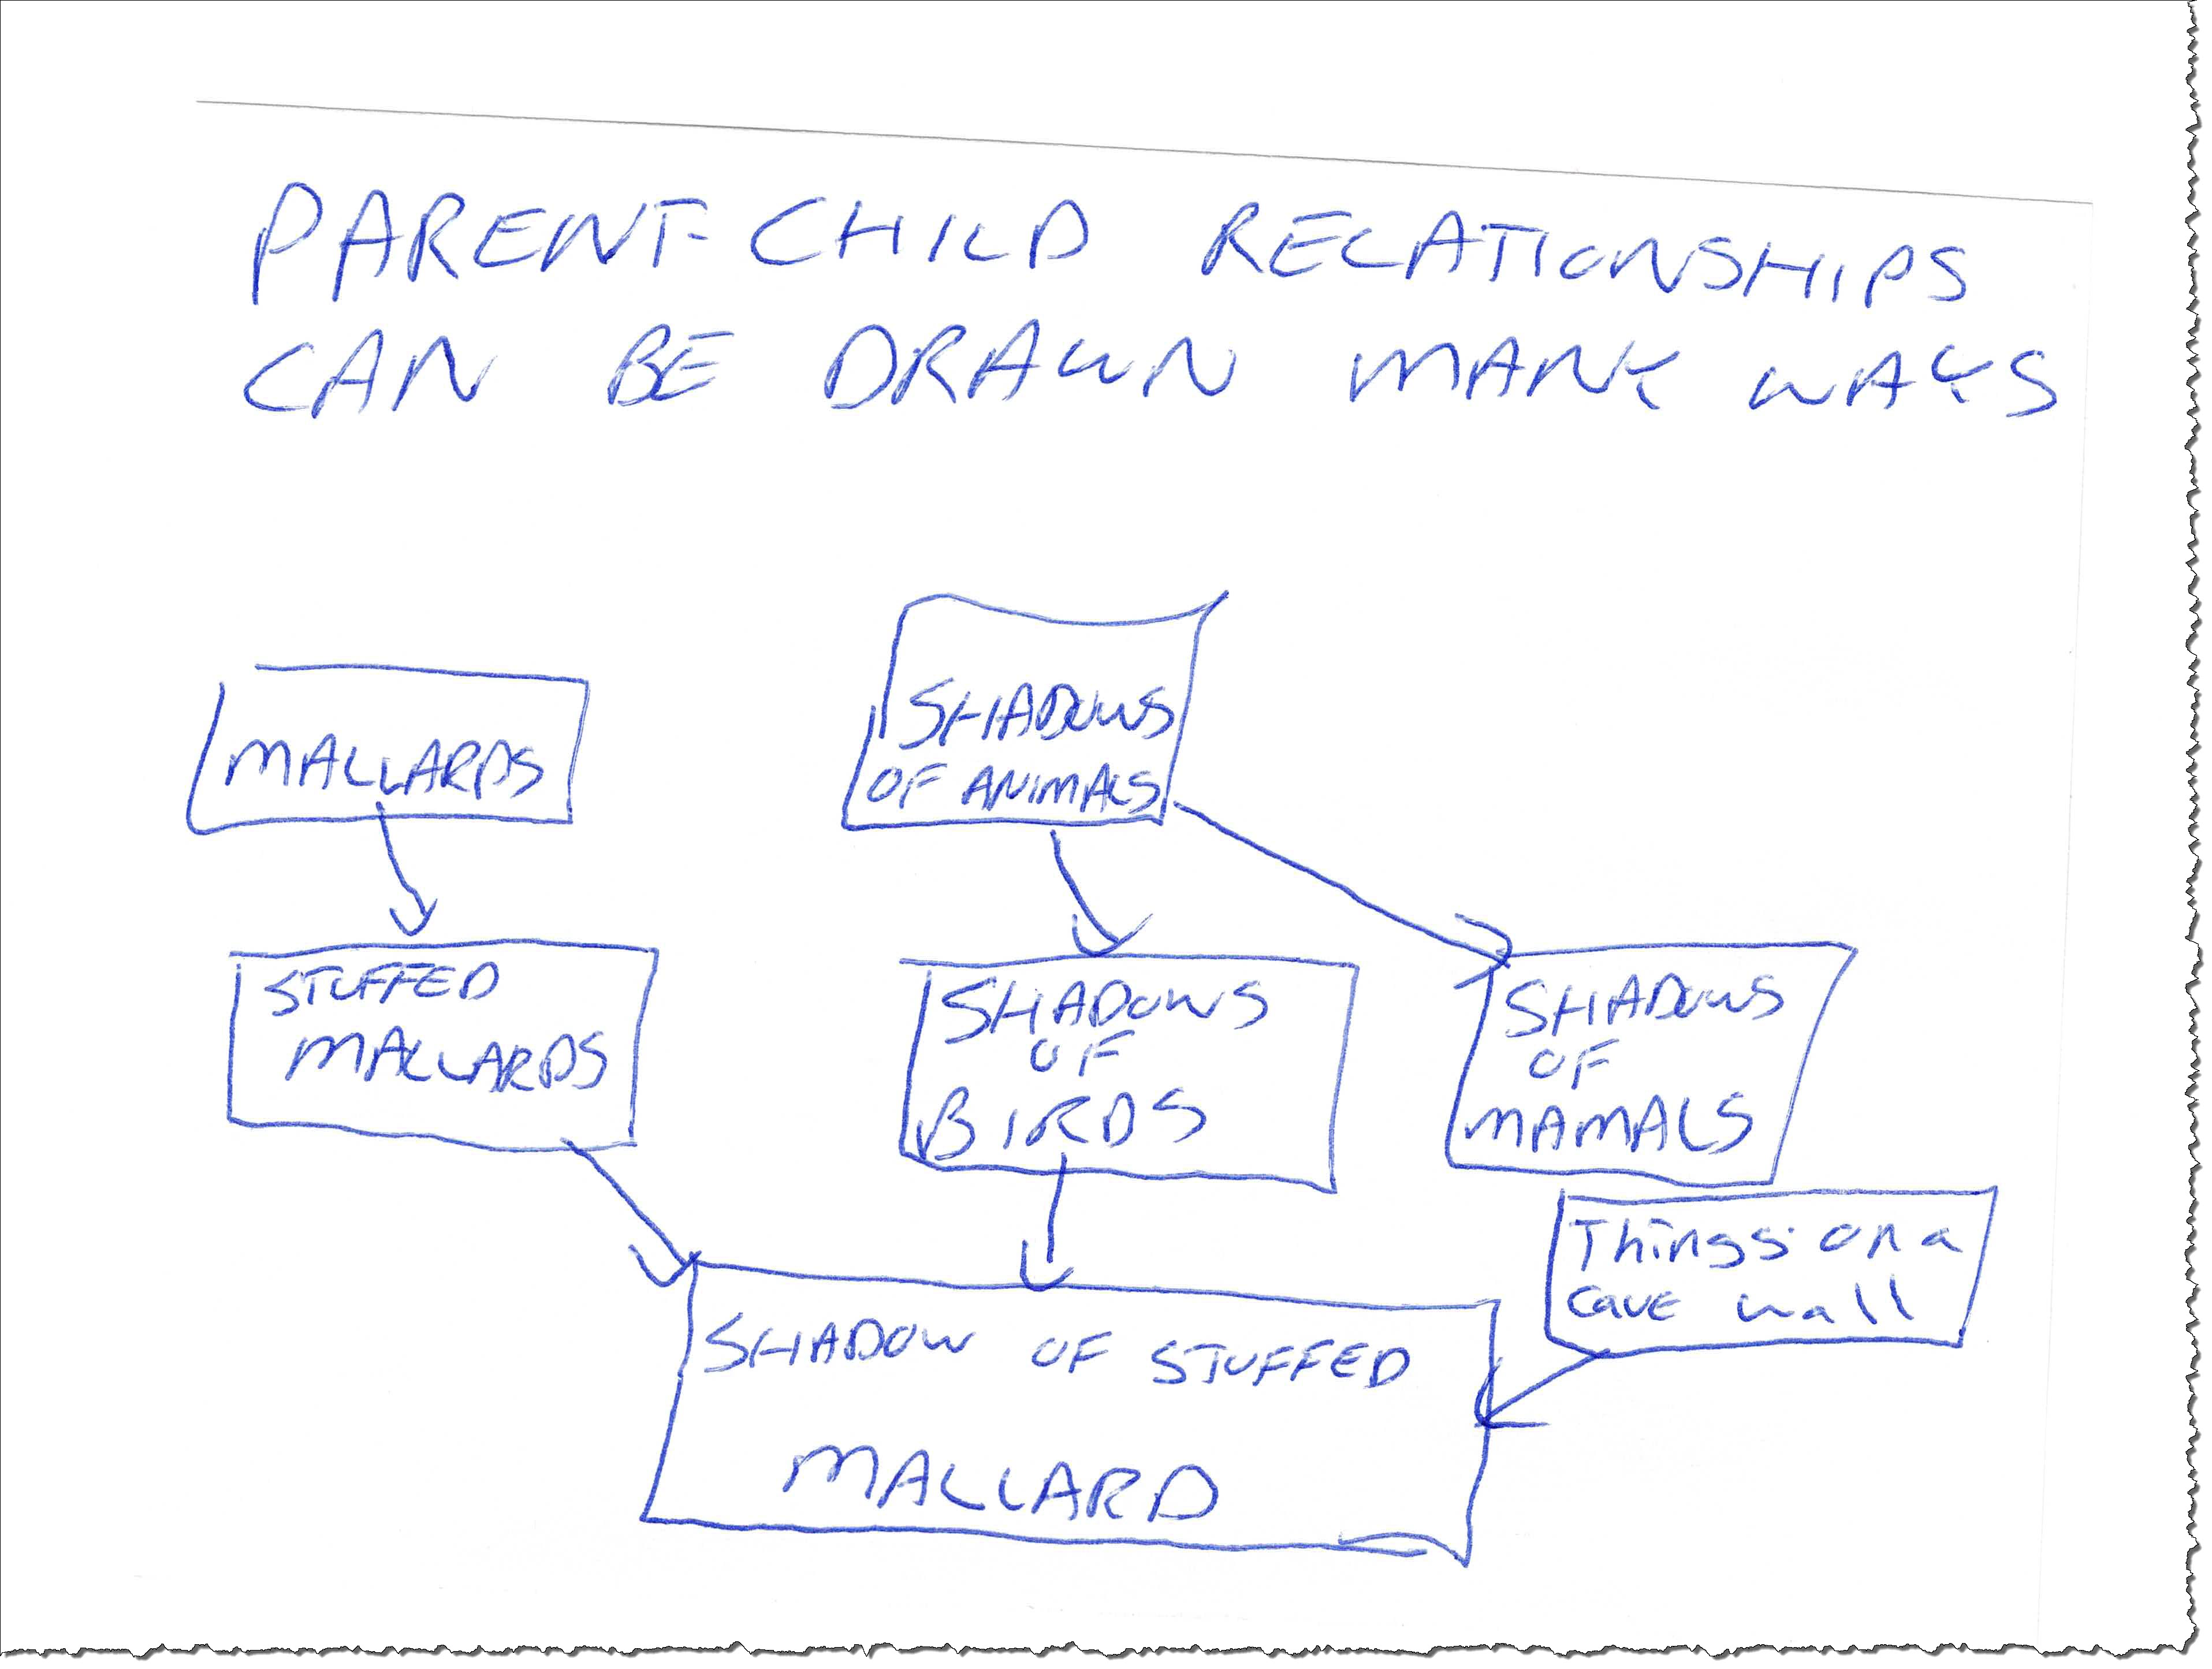 PARENT-CHILD RELATIONSHIPS
CAN BE DRAWN MANY WAYS
MALLARDS
SHADOWS
OF ANIMALS
STUFFED
MALLARDS
SHADOWS
OF
BIRDS
SHADOWS
OF
MAMALS
Things on a
cave wall
SHADOW OF STUFFED
MALLARD